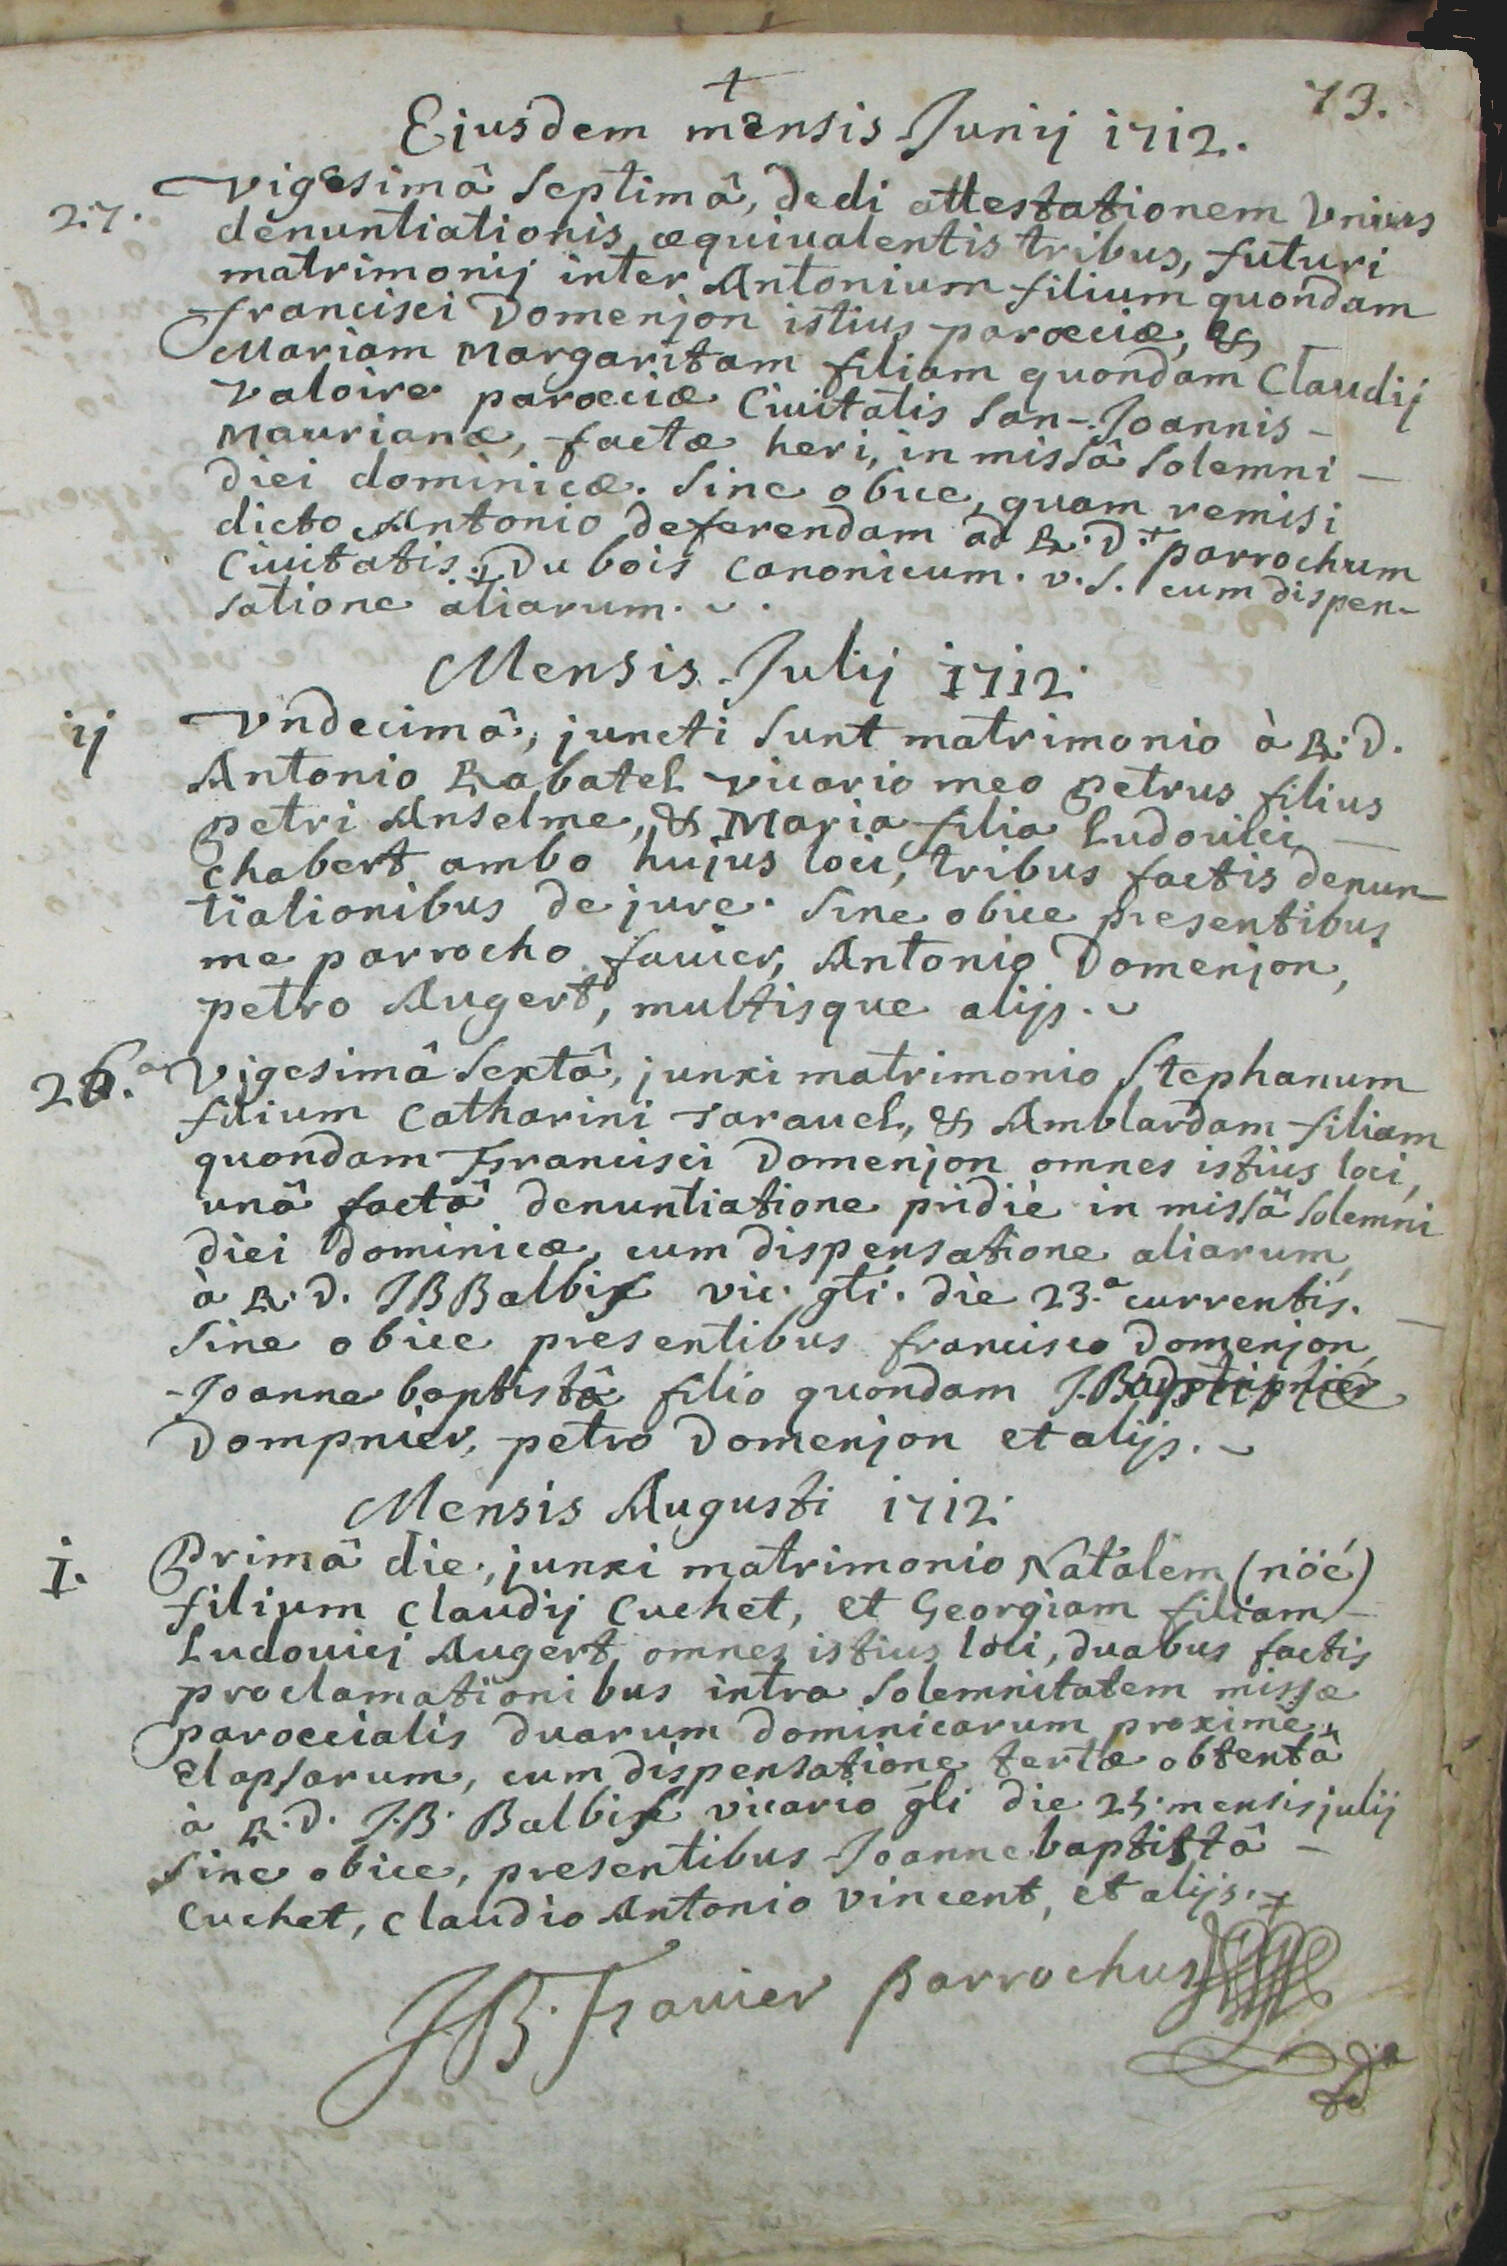 +
73.
Ejusdem mensis Junij 1712.
27. Vigesimâ Septimâ, dedi attestationem Vnius
denuntiationis æquiualentis tribus, futuri
matrimonij inter Antonium filium quondam
francisci Domenjon istius parœciæ, &
Mariam Margaritam filiam quondam Claudij
Valoire parœciæ Ciuitatis San-Joannis -
Maurianæ, factæ heri, in missâ Solemni -
diei dominicæ. Sine obice, quam remisi
dicto Antonio deferendam ad R. D. parrochum
Ciuitatis. Du bois Canonicum. v. S. cum dispen-
satione aliarum.
Mensis Julij 1712.
ij Vndecimâ, juncti Sunt matrimonio à R. D.
Antonio Rabatel Vicario meo petrus filius
petri Anselme, & Maria filia Ludouici -
Chabert ambo hujus loci, tribus factis denun
tiationibus de jure. Sine obice presentibus
me parrocho fauier, Antonio Domenjon,
petro Augert, multisque alijs.
26.a Vigesimâ Sextâ, junxi matrimonio Stephanum
filium Catharini Tarauel, & Amblardam filiam
quondam Francisci Domenjon omnes istius loci,
unâ factâ denuntiatione pridie in missâ Solemni
diei Dominicæ, cum dispensatione aliarum,
à R. D. JB Balbis vic. gli. die 23.a currentis. -
Sine obice presentibus francisco Domenjon,
Joanne baptistâ filio quondam J.
Dompnier, petro Domenjon et alijs.
Mensis Augusti 1712.
I. Primâ die, junxi matrimonio Natalem (nöé)
filium Claudij Cuchet, et Georgiam filiam -
Ludouici Augert omnes istius loci, duabus factis
proclamationibus intra Solemnitatem missæ
paroccialis duarum dominicarum proximè
elapsarum, cum dispensatione tertiæ obtentâ
à R. D. J.B. Balbis vicario gli die 25. mensis julij
Sine obice, presentibus Joanne baptistâ -
Cuchet, Claudio Antonio Vincent, et alijs.
JB. Fauier parrochus